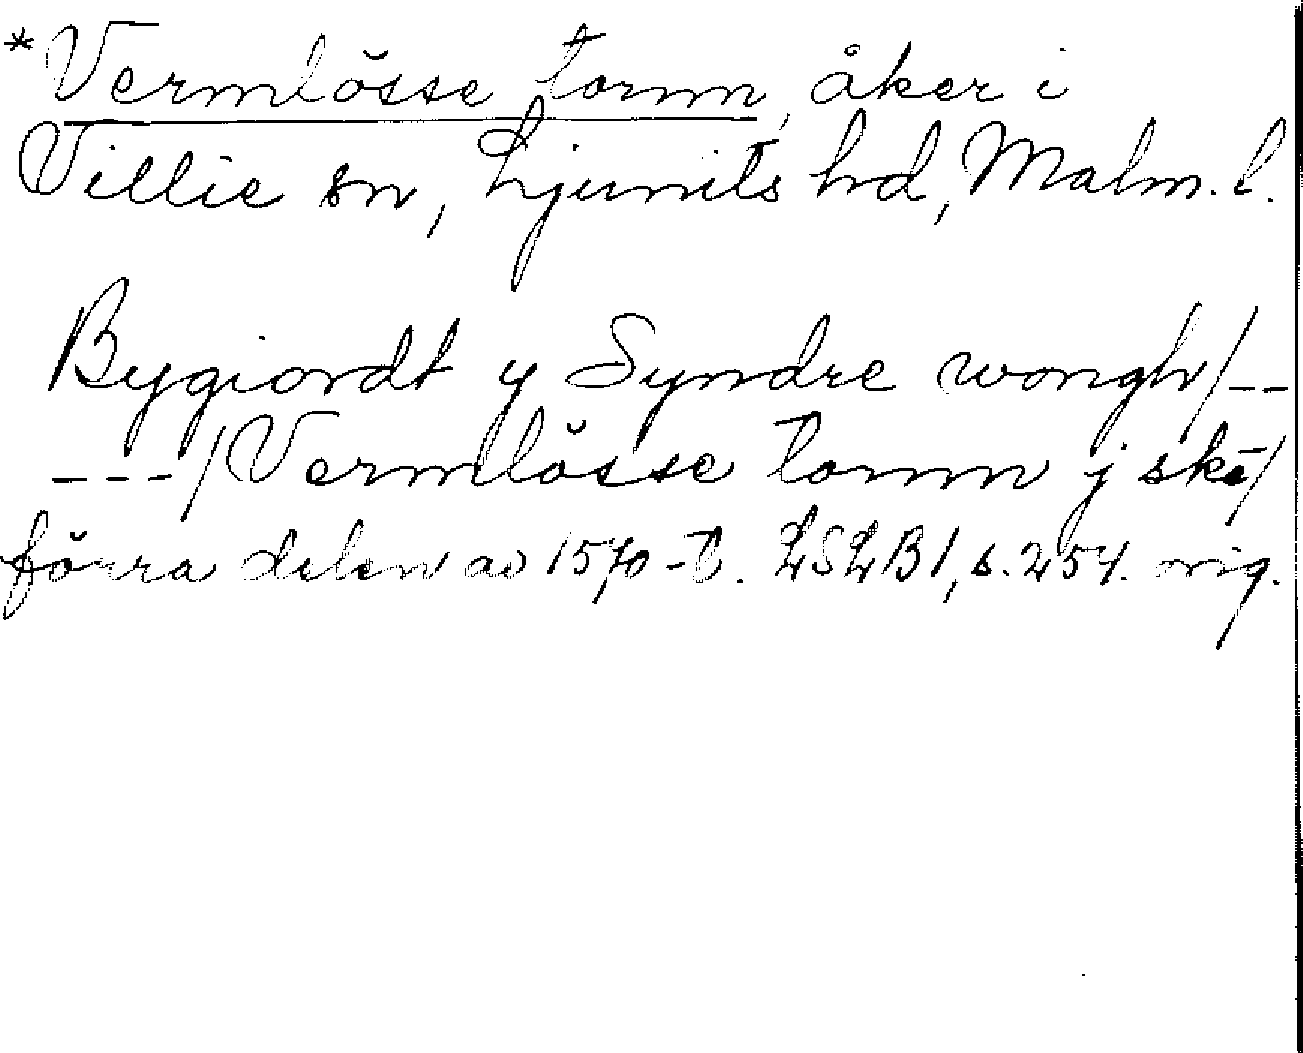 *Vermlösse tornn, åker i
Villie sn, Ljunits hd, Malm. l.
Bygiordt y Syndre wongh/--
---/Vermlösse tornn j skē/
förra delen av 1570-t. LSLB1, s. 254. orig.